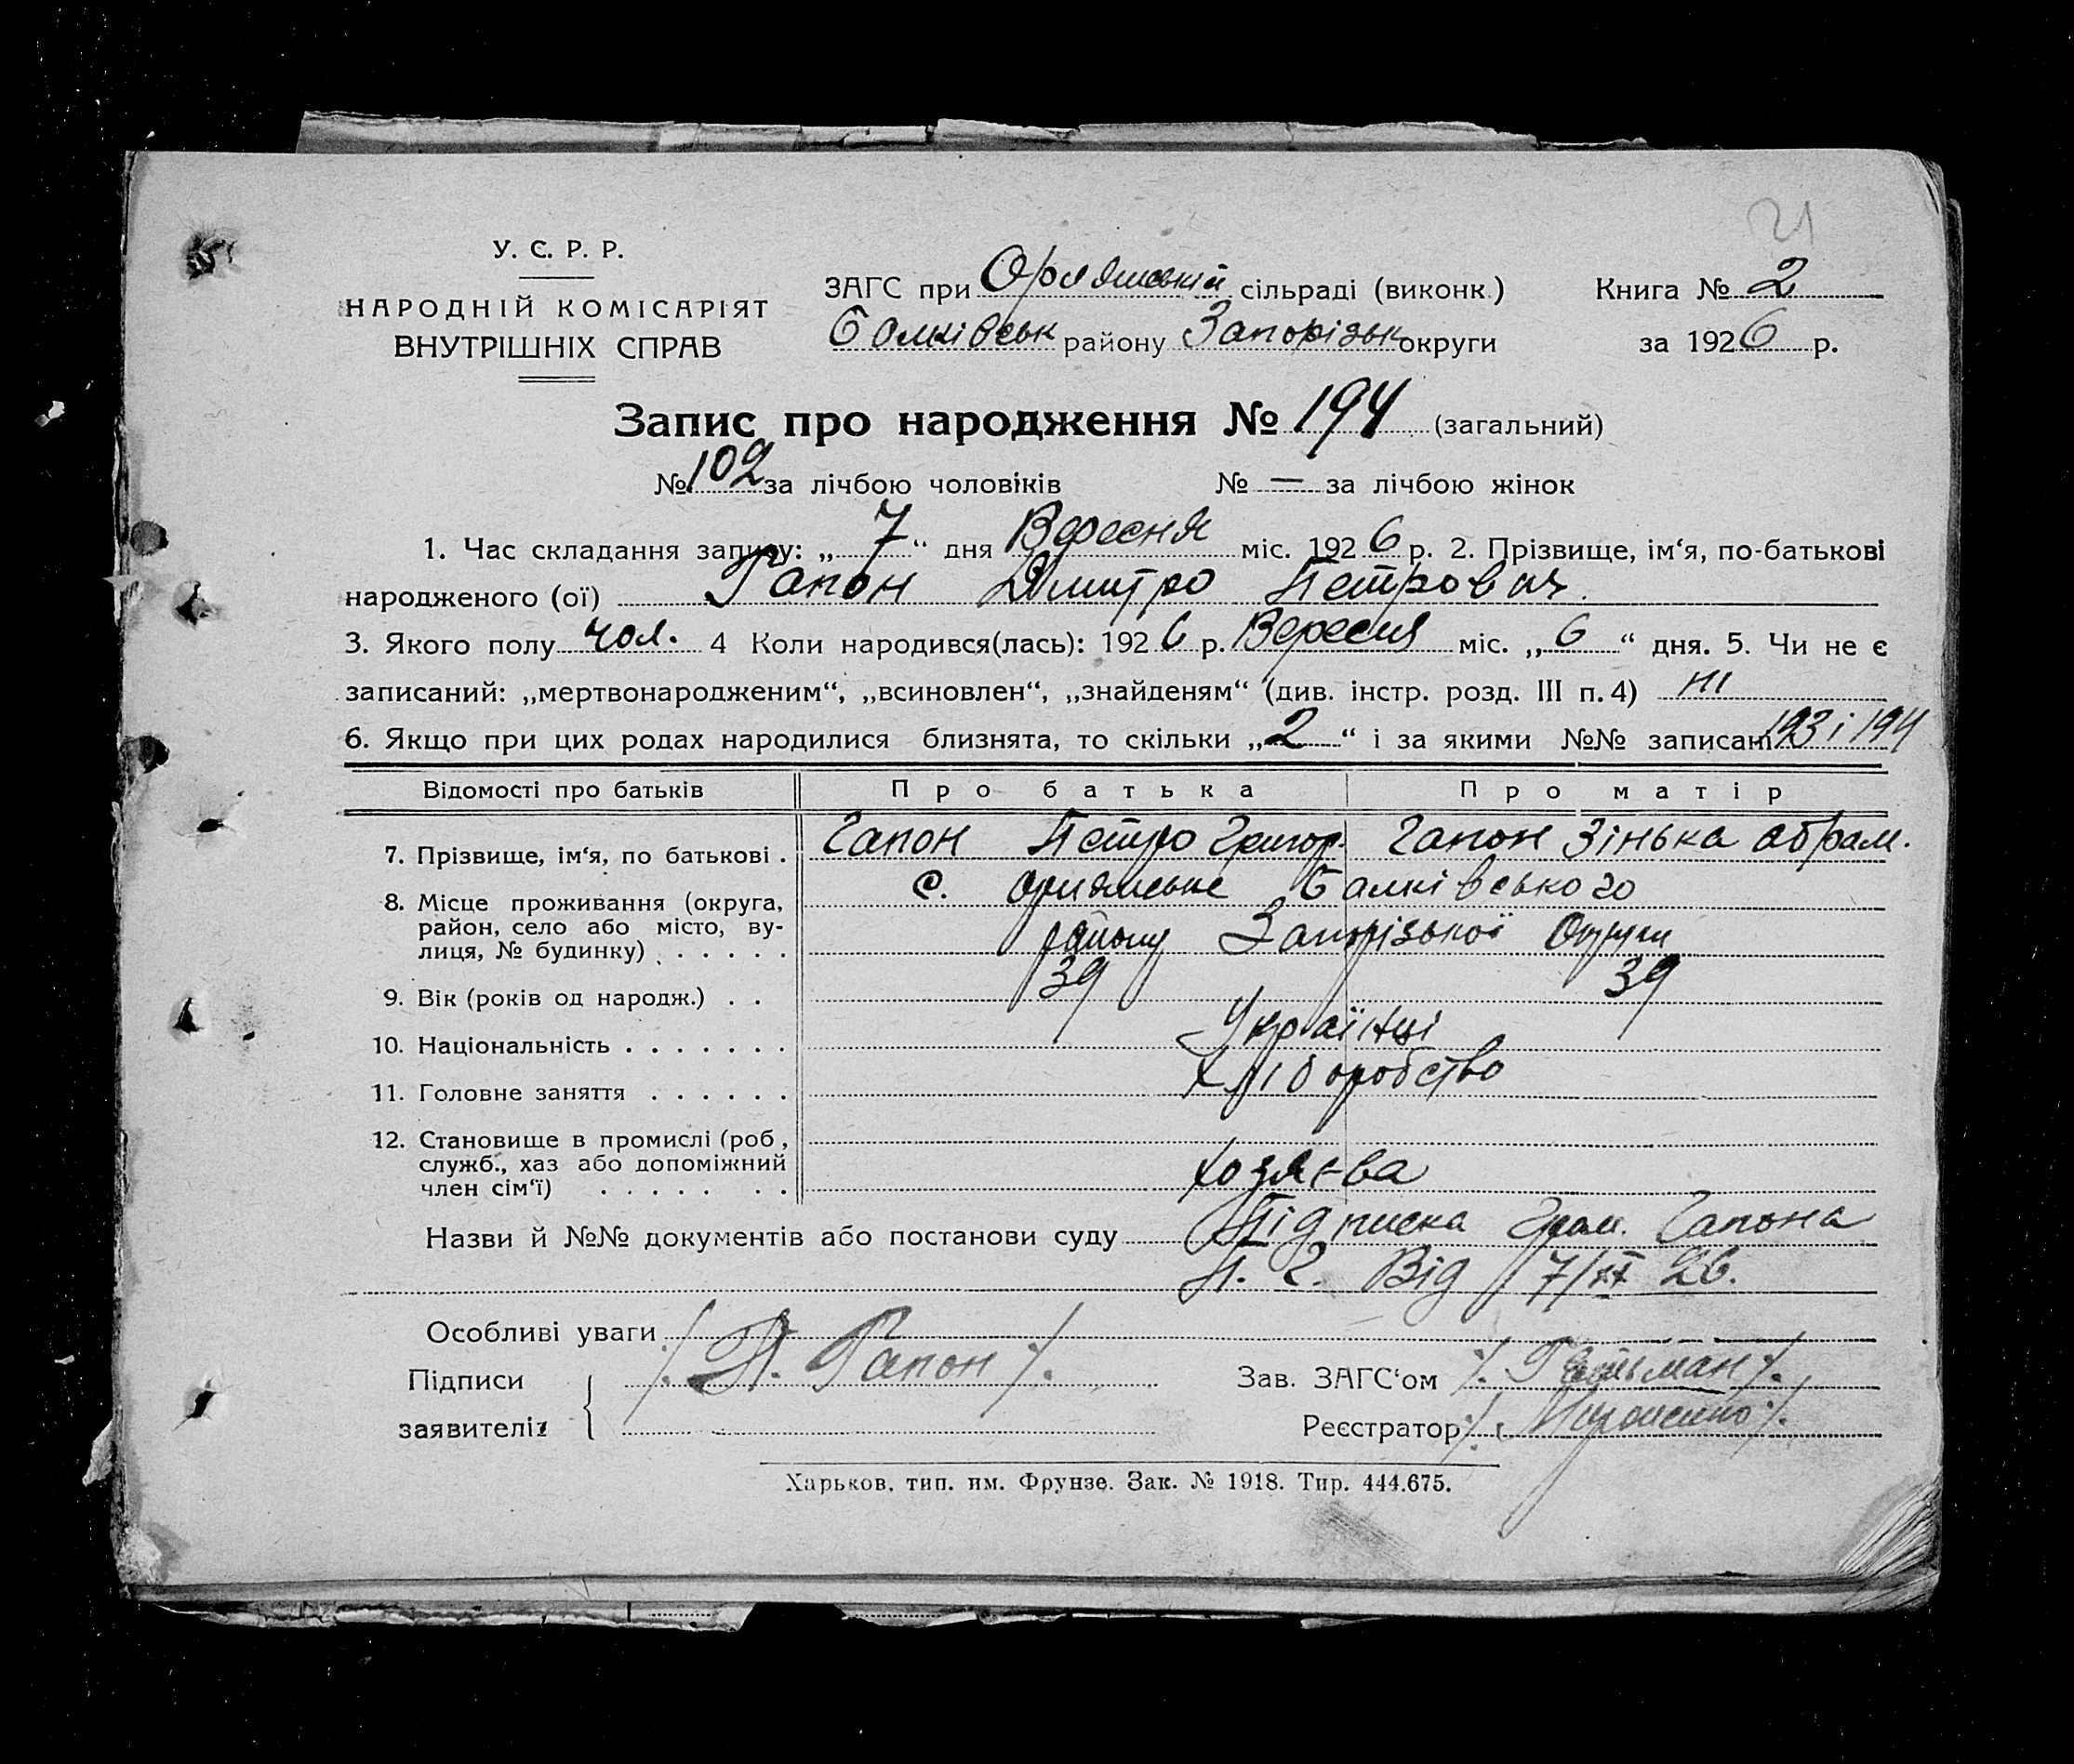 21
У. С. Р. Р.
НАРОДНІЙ КОМІСАРІЯТ
ВНУТРІШНІХ СПРАВ
ЗАГС при Орлянській сільраді (виконк.)
Балківськ району Запорізьк округи
Книга № 2
за 1926 р.
Запис про народження № 194 (загальний)
№ 102 за лічбою чоловіків № — за лічбою жінок
1. Час складання запису: „ 7 “ дня Вересня міс. 1926 р. 2. Прізвище, ім‘я, по-батькові
народженого (ої) Гапон Дмитро Петрович.
3. Якого полу чол. 4 Коли народився(лась): 1926 р. Вересня міс. „ 6 “ дня. 5. Чи не є
записаний: „мертвонародженим“, „всиновлен“, „знайденям“ (див. інстр. розд. III п. 4) ні
6. Якщо при цих родах народилися близнята, то скільки „ 2 “ і за якими №№ записані 193 і 194
Відомості про батьків Про батька Про матір
7. Прізвище, ім‘я, по батькові . Гапон Петро Григор. Гапон Зінька Абрам.
8. Місце проживання (округа, с. Орлянське Балківського
район, село або місто, ву-
лиця, № будинку) . . . . . . району Запорізької Округи
9. Вік (років од народж.) . . 39 39
10. Національність . . . . . . . Українці
11. Головне заняття . . . . . . Хліборобство
12. Становище в промислі (роб,
служб., хаз або допоміжний
член сім‘ї) . . . . . . . Хозяєва
Назви й №№ документів або постанови суду Підписка Гром. Гапона
П. Г. Від 7/IX 26.
Особливі уваги
Підписи
заявителів
/. П. Гапон /.
Зав. ЗАГС‘ом /. Гетьман /.
Реєстратор
Харьков, тип. им. Фрунзе. Зак. № 1918. Тир. 444.675.